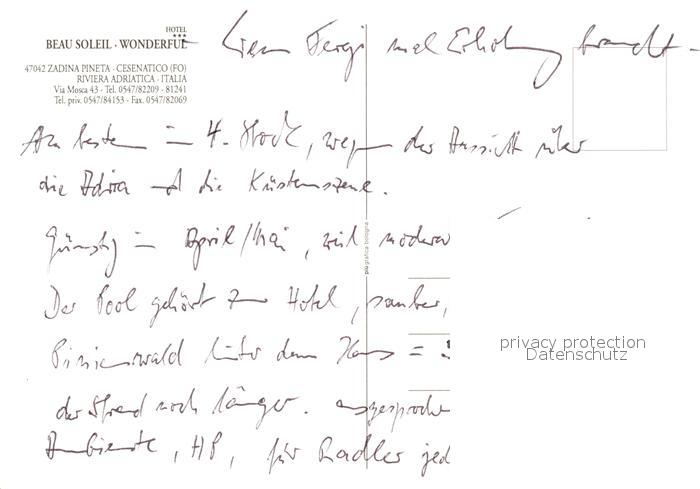 HOTEL
★★★
BEAU SOLEIL · WONDERFUL
47042 ZADINA PINETA · CESENATICO (FO)
RIVIERA ADRIATICA · ITALIA
Via Mosca 43 - Tel. 0547/82209 - 81241
Tel. priv. 0547/84153 - Fax. 0547/82069
Wenn Fergi mal Erholung braucht -
Am besten im 4. Stock, wegen der Aussicht über
die Adria und die Küstenszene.
Günstig im April/Mai, weil moderat
Der Pool gehört zum Hotel, sauber,
Pinienwald hinter dem Haus =
der Strand noch länger. ausgesproche
Ambiente, HP, für Radler jed
più grafica bologna
privacy protection
Datenschutz